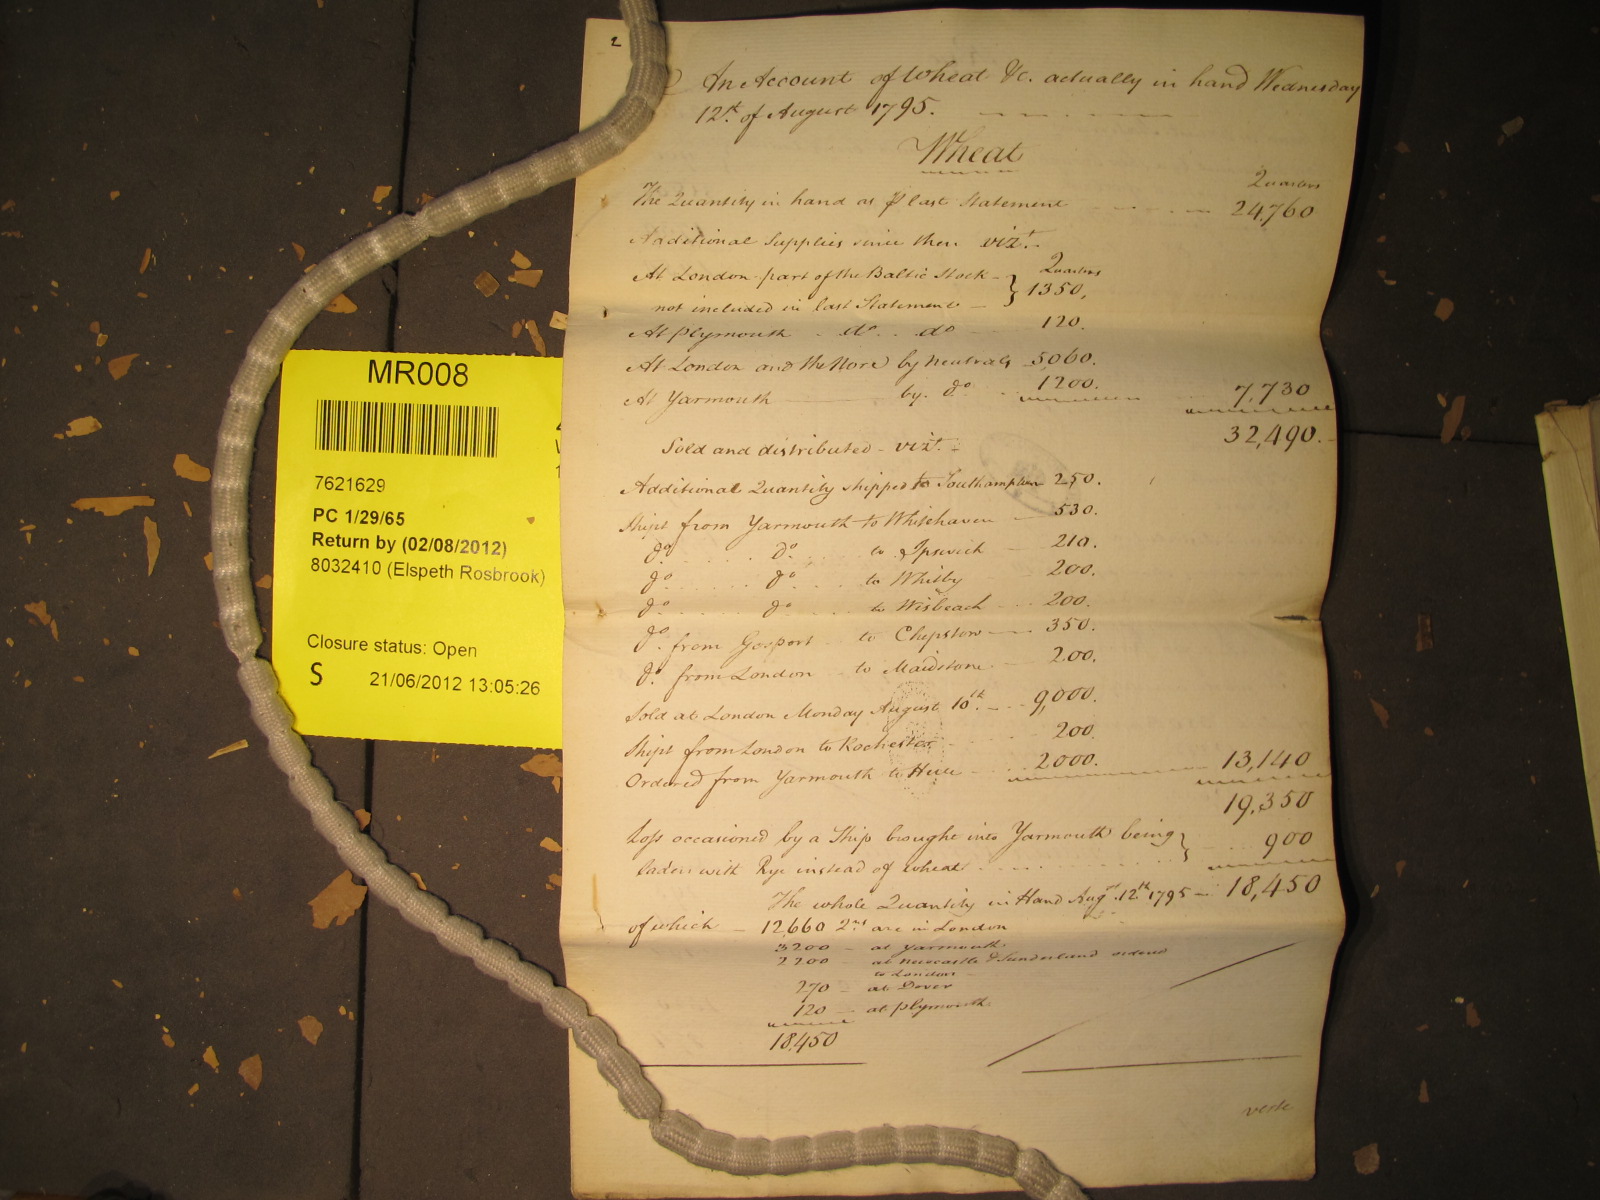 2
An Account of Wheat &c. actually in hand Wednesday
12th. of August 1795.
Wheat
Quarters
The Quantity in hand as p last Statement 24,760
Additional Supplies since then vizt.
Quarters
At London part of the Baltic Stock
not included in last Statement } 1350,
At Plymouth do. do 120.
At London and the Nore by Neutrals 5060.
At Yarmouth by do 1200. 7,730
32,490.
Sold and distributed - vizt.
Additional Quantity shipped to Southampton 250.
Shipt from Yarmouth to Whitehaven 530.
do do to Ipswich 210.
do do to Whitby 200.
do do to Wisbeach 200.
do. from Gosport to Chepstow 350.
do. from London to Maidstone 200.
Sold at London Monday August 10th. 9,000.
Shipt from London to Rochester 200.
Ordered from Yarmouth to Hull 2000. 13,140
19,350
Loss occasioned by a Ship brought into Yarmouth being
laden with Rye instead of wheat } 900
The whole Quantity in Hand Augst. 12th. 1795 18,450
of which 12,660 Qrs are in London
3200 at Yarmouth
2200 at Newcastle & Sunderland ordered
to London
270 at Dover
120 at Plymouth
18,450
verte
MR008
7621629
PC 1/29/65
Return by (02/08/2012)
8032410 (Elspeth Rosbrook)
Closure status: Open
S 21/06/2012 13:05:26